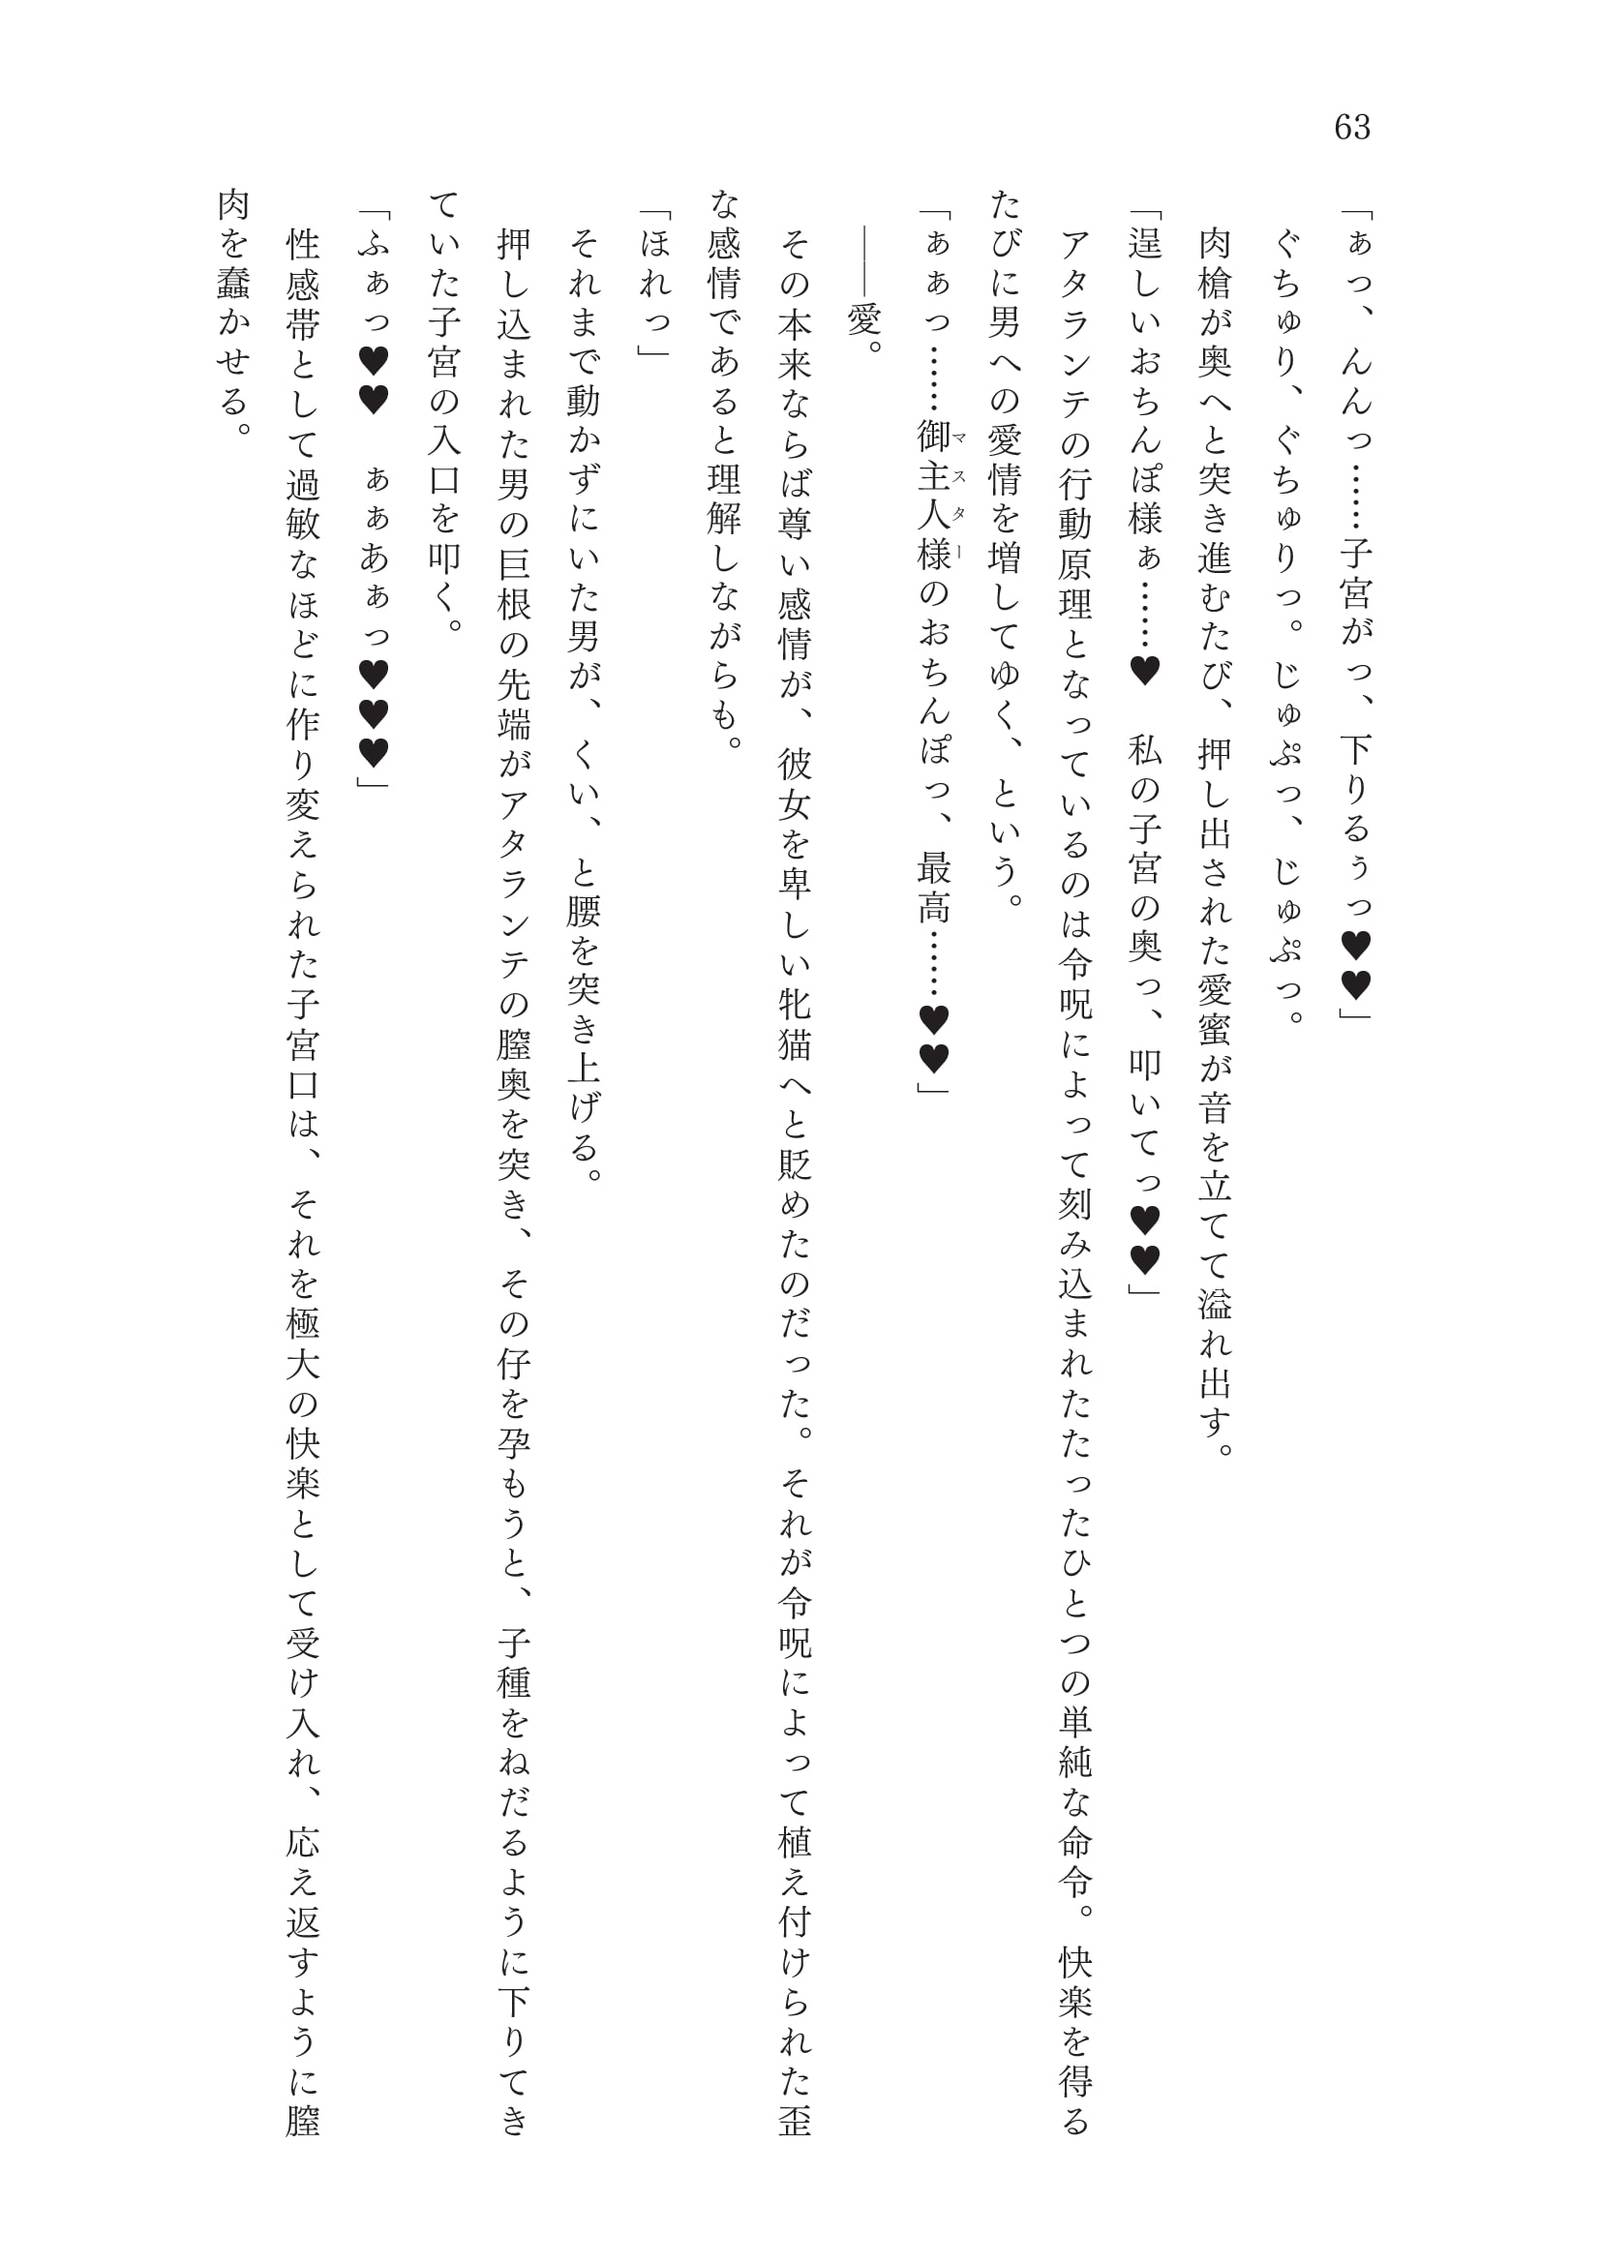 63
「ぁっ、んんっ……子宮がっ、下りるぅっ♥♥」
ぐちゅり、ぐちゅりっ。じゅぷっ、じゅぷっ。
肉槍が奥へと突き進むたび、押し出された愛蜜が音を立てて溢れ出す。
「逞しいおちんぽ様ぁ……♥　私の子宮の奥っ、叩いてっ♥♥」
アタランテの行動原理となっているのは令呪によって刻み込まれたたったひとつの単純な命令。快楽を得る
たびに男への愛情を増してゆく、という。
「ぁぁっ……御主人様のおちんぽっ、最高……♥♥」
マスター
――愛。
その本来ならば尊い感情が、彼女を卑しい牝猫へと貶めたのだった。それが令呪によって植え付けられた歪
な感情であると理解しながらも。
「ほれっ」
それまで動かずにいた男が、くい、と腰を突き上げる。
押し込まれた男の巨根の先端がアタランテの膣奥を突き、その仔を孕もうと、子種をねだるように下りてき
ていた子宮の入口を叩く。
「ふぁっ♥♥　ぁぁあぁっ♥♥♥」
性感帯として過敏なほどに作り変えられた子宮口は、それを極大の快楽として受け入れ、応え返すように膣
肉を蠢かせる。